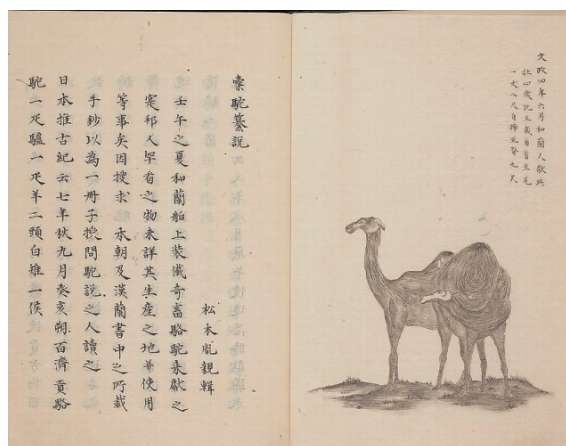 文政四年六月和蘭人献
牡四歳牝五歳自首至尾
一丈八尺自蹄至脊九尺
槖駝纂説
松本胤親輯
壬午之夏和蘭舶上装儎奇畜駱駝来獻之
寔邦人罕看之物未詳其生産之地并使用
等事矣因捜求本朝及漢蘭書中之所載
手鈔以為一冊子換問駝説之人讀之
日本推古紀云七年秋九月癸亥朔百濟貢駱
駝一疋驢一疋羊二頭白雉一隻